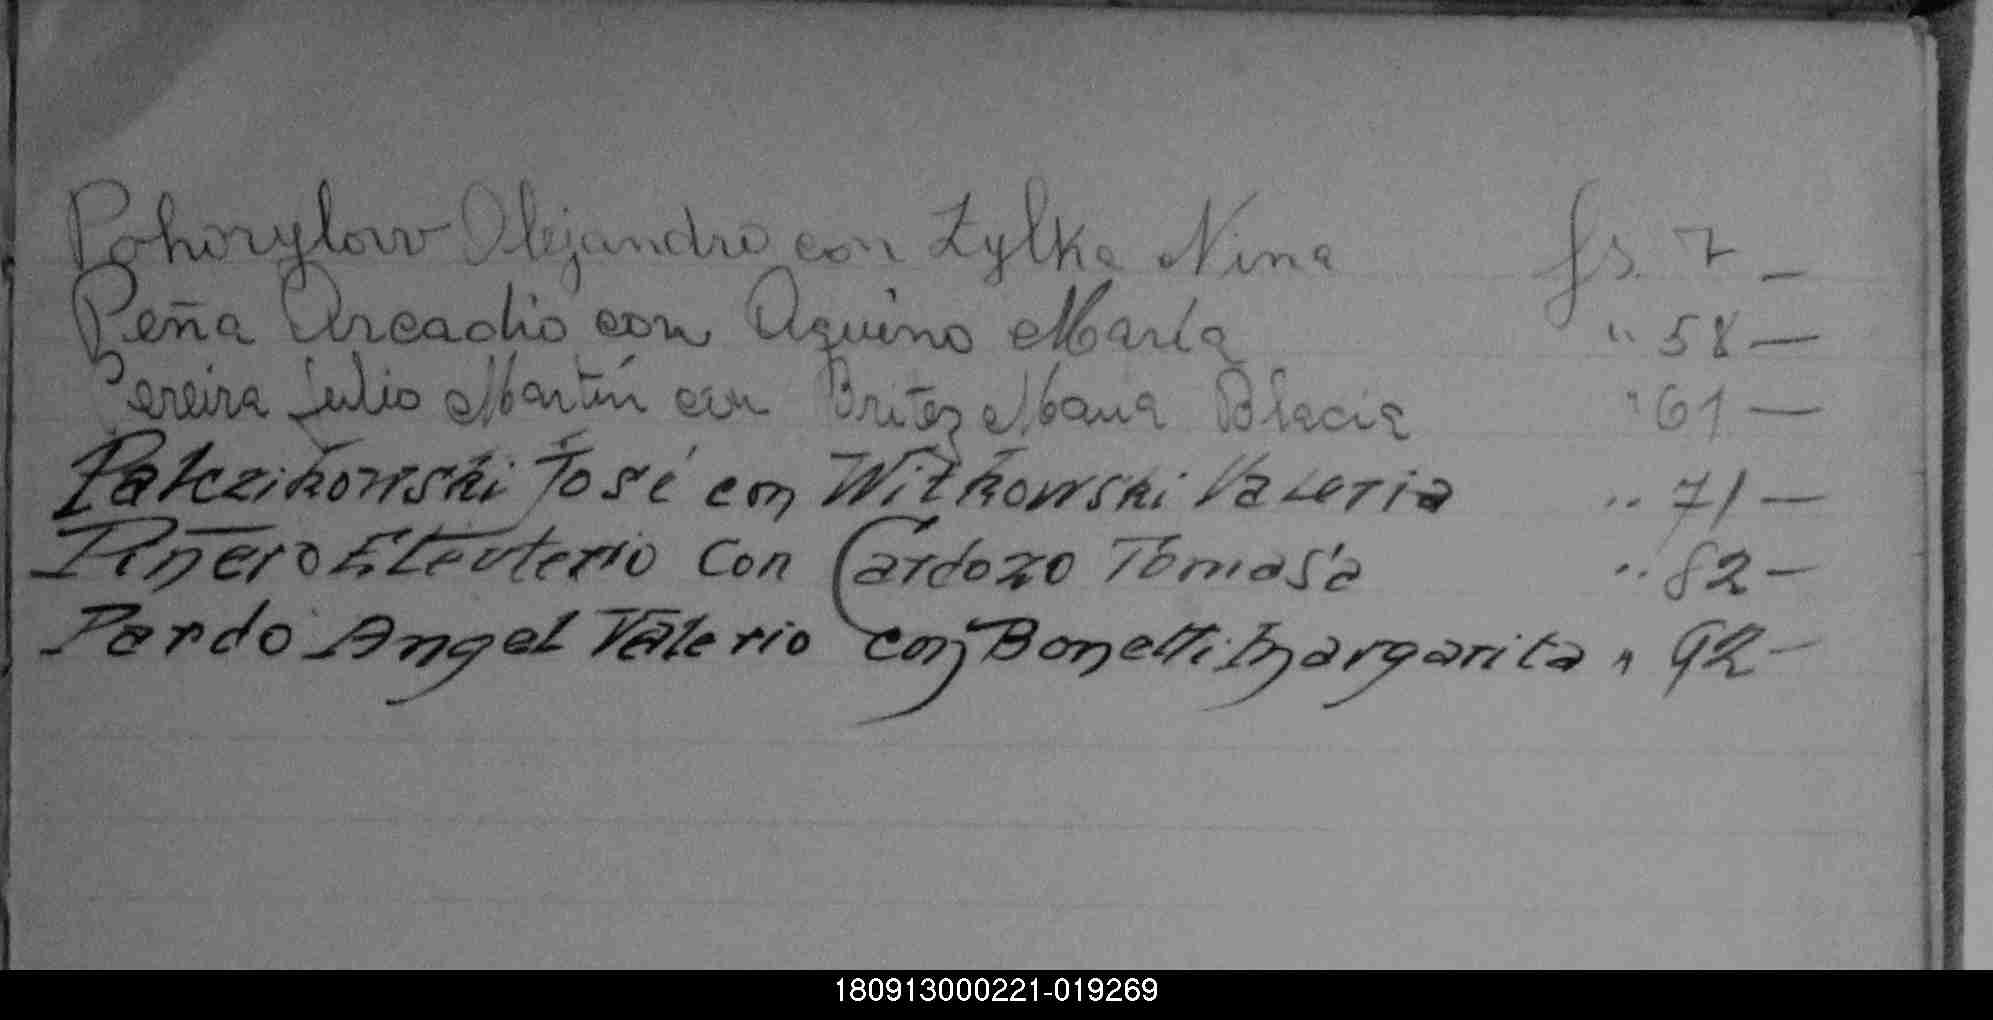 Pohorylow Alejandro con Zylka Nina fs. 7 —
Peña Arcadio con Aquino María " 58 —
Pereira Julio Martín con Britez María Blacia " 61 —
Palczikowski José con Witkowski Valeria " 71 —
Piñero Eleuterio con Cardozo Tomasa " 82 —
Pardo Angel Valerio con Bonetti Margarita " 92 —
180913000221-019269